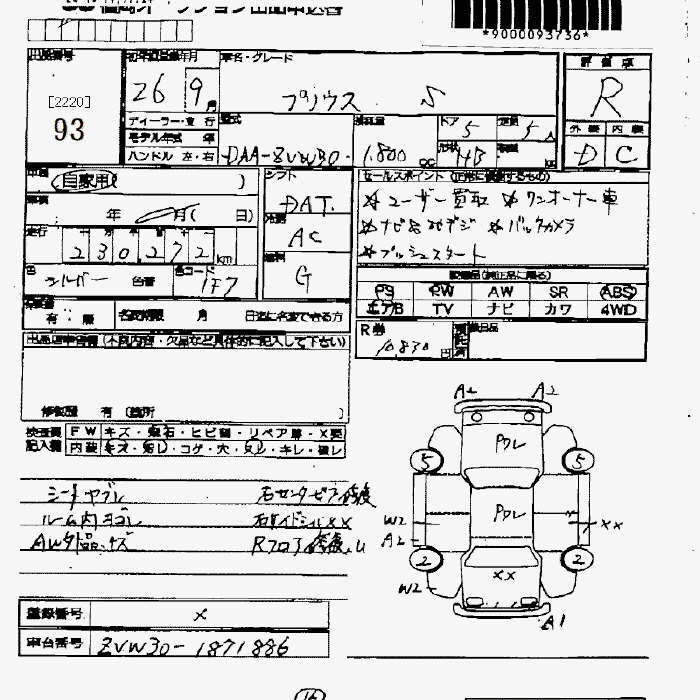 *9000093736*
出品番号
[2220]
93
初年度登録年月
26 9月
車名・グレード
プリウス S
評価点
R
外装 内装
D C
ディーラー・並行
モデル年式 年
ハンドル 左・右
型式
DAA-ZVW30
排気量
1,800 CC
ドア
5
定員
5人
形状
HB
車歴
自家用
車検
年 月( 日)
走行
230,272 km
色
シルバー
色替
色コード
1F7
シフト
DAT
冷房
AC
燃料
G
セールスポイント
☆ユーザー買取 ☆ワンオーナー車
☆ナビ 地デジ ☆バックカメラ
☆プッシュスタート
装備品(純正品に限る)
PS PW AW SR ABS
エアB TV ナビ カワ 4WD
有・無
名変期限 月 日迄に名変できる方
R券
10,830円
出品店申告欄(不良内容・欠品など具体的に記入して下さい)
修復歴 有(箇所 )
検査員
記入欄
FW キズ・飛石・ヒビ割・リペア跡・X要
内装 キズ・汚レ・コゲ・穴・スレ・キレ・破レ
シートヤブレ
ルーム内ヨゴレ
AWタ品、キズ
右センターピラー修復
右サイドシルXX
Rフロア修復、U
A2 A2
Pクレ
5 5
Pクレ
W2
A2
XX
2 2
W2
XX
A1
登録番号 X
車台番号 ZVW30-1871886
16